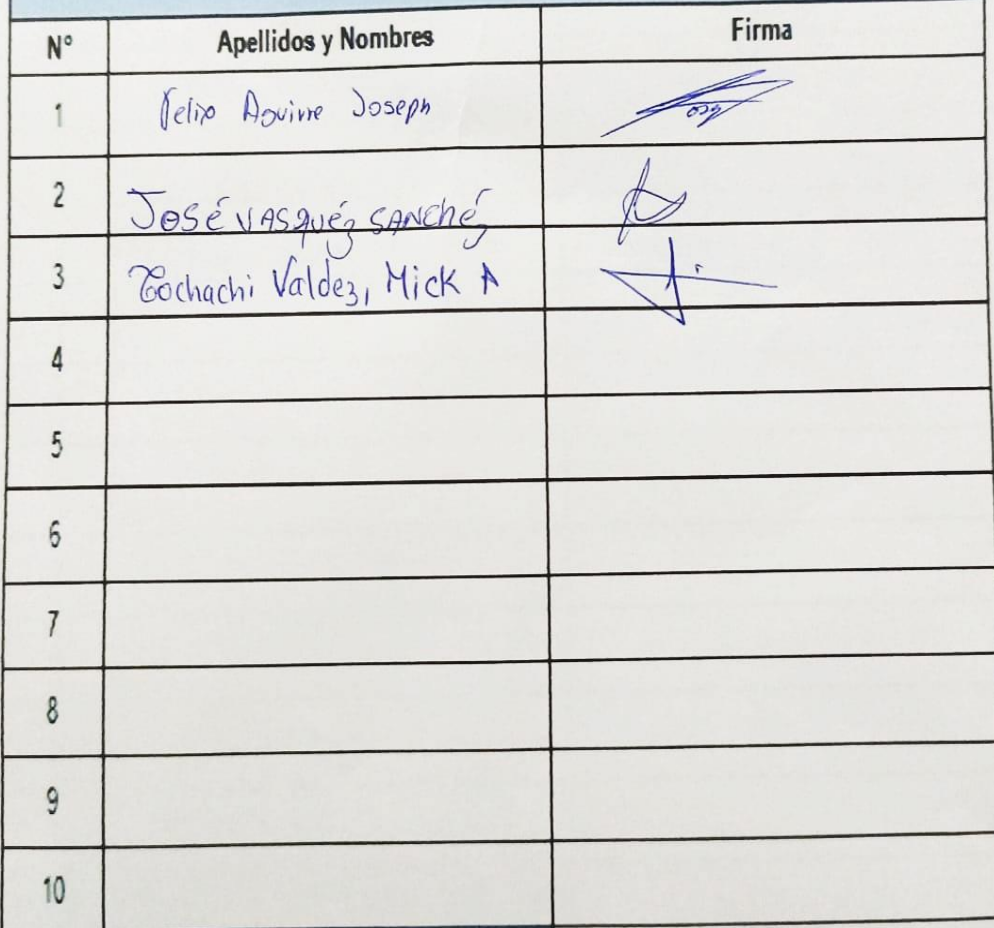 N° Apellidos y Nombres Firma
1 Felix Aguirre Joseph
2 José VASQUéz SANChéz
3 Cochachi Valdez, Mick A
4
5
6
7
8
9
10